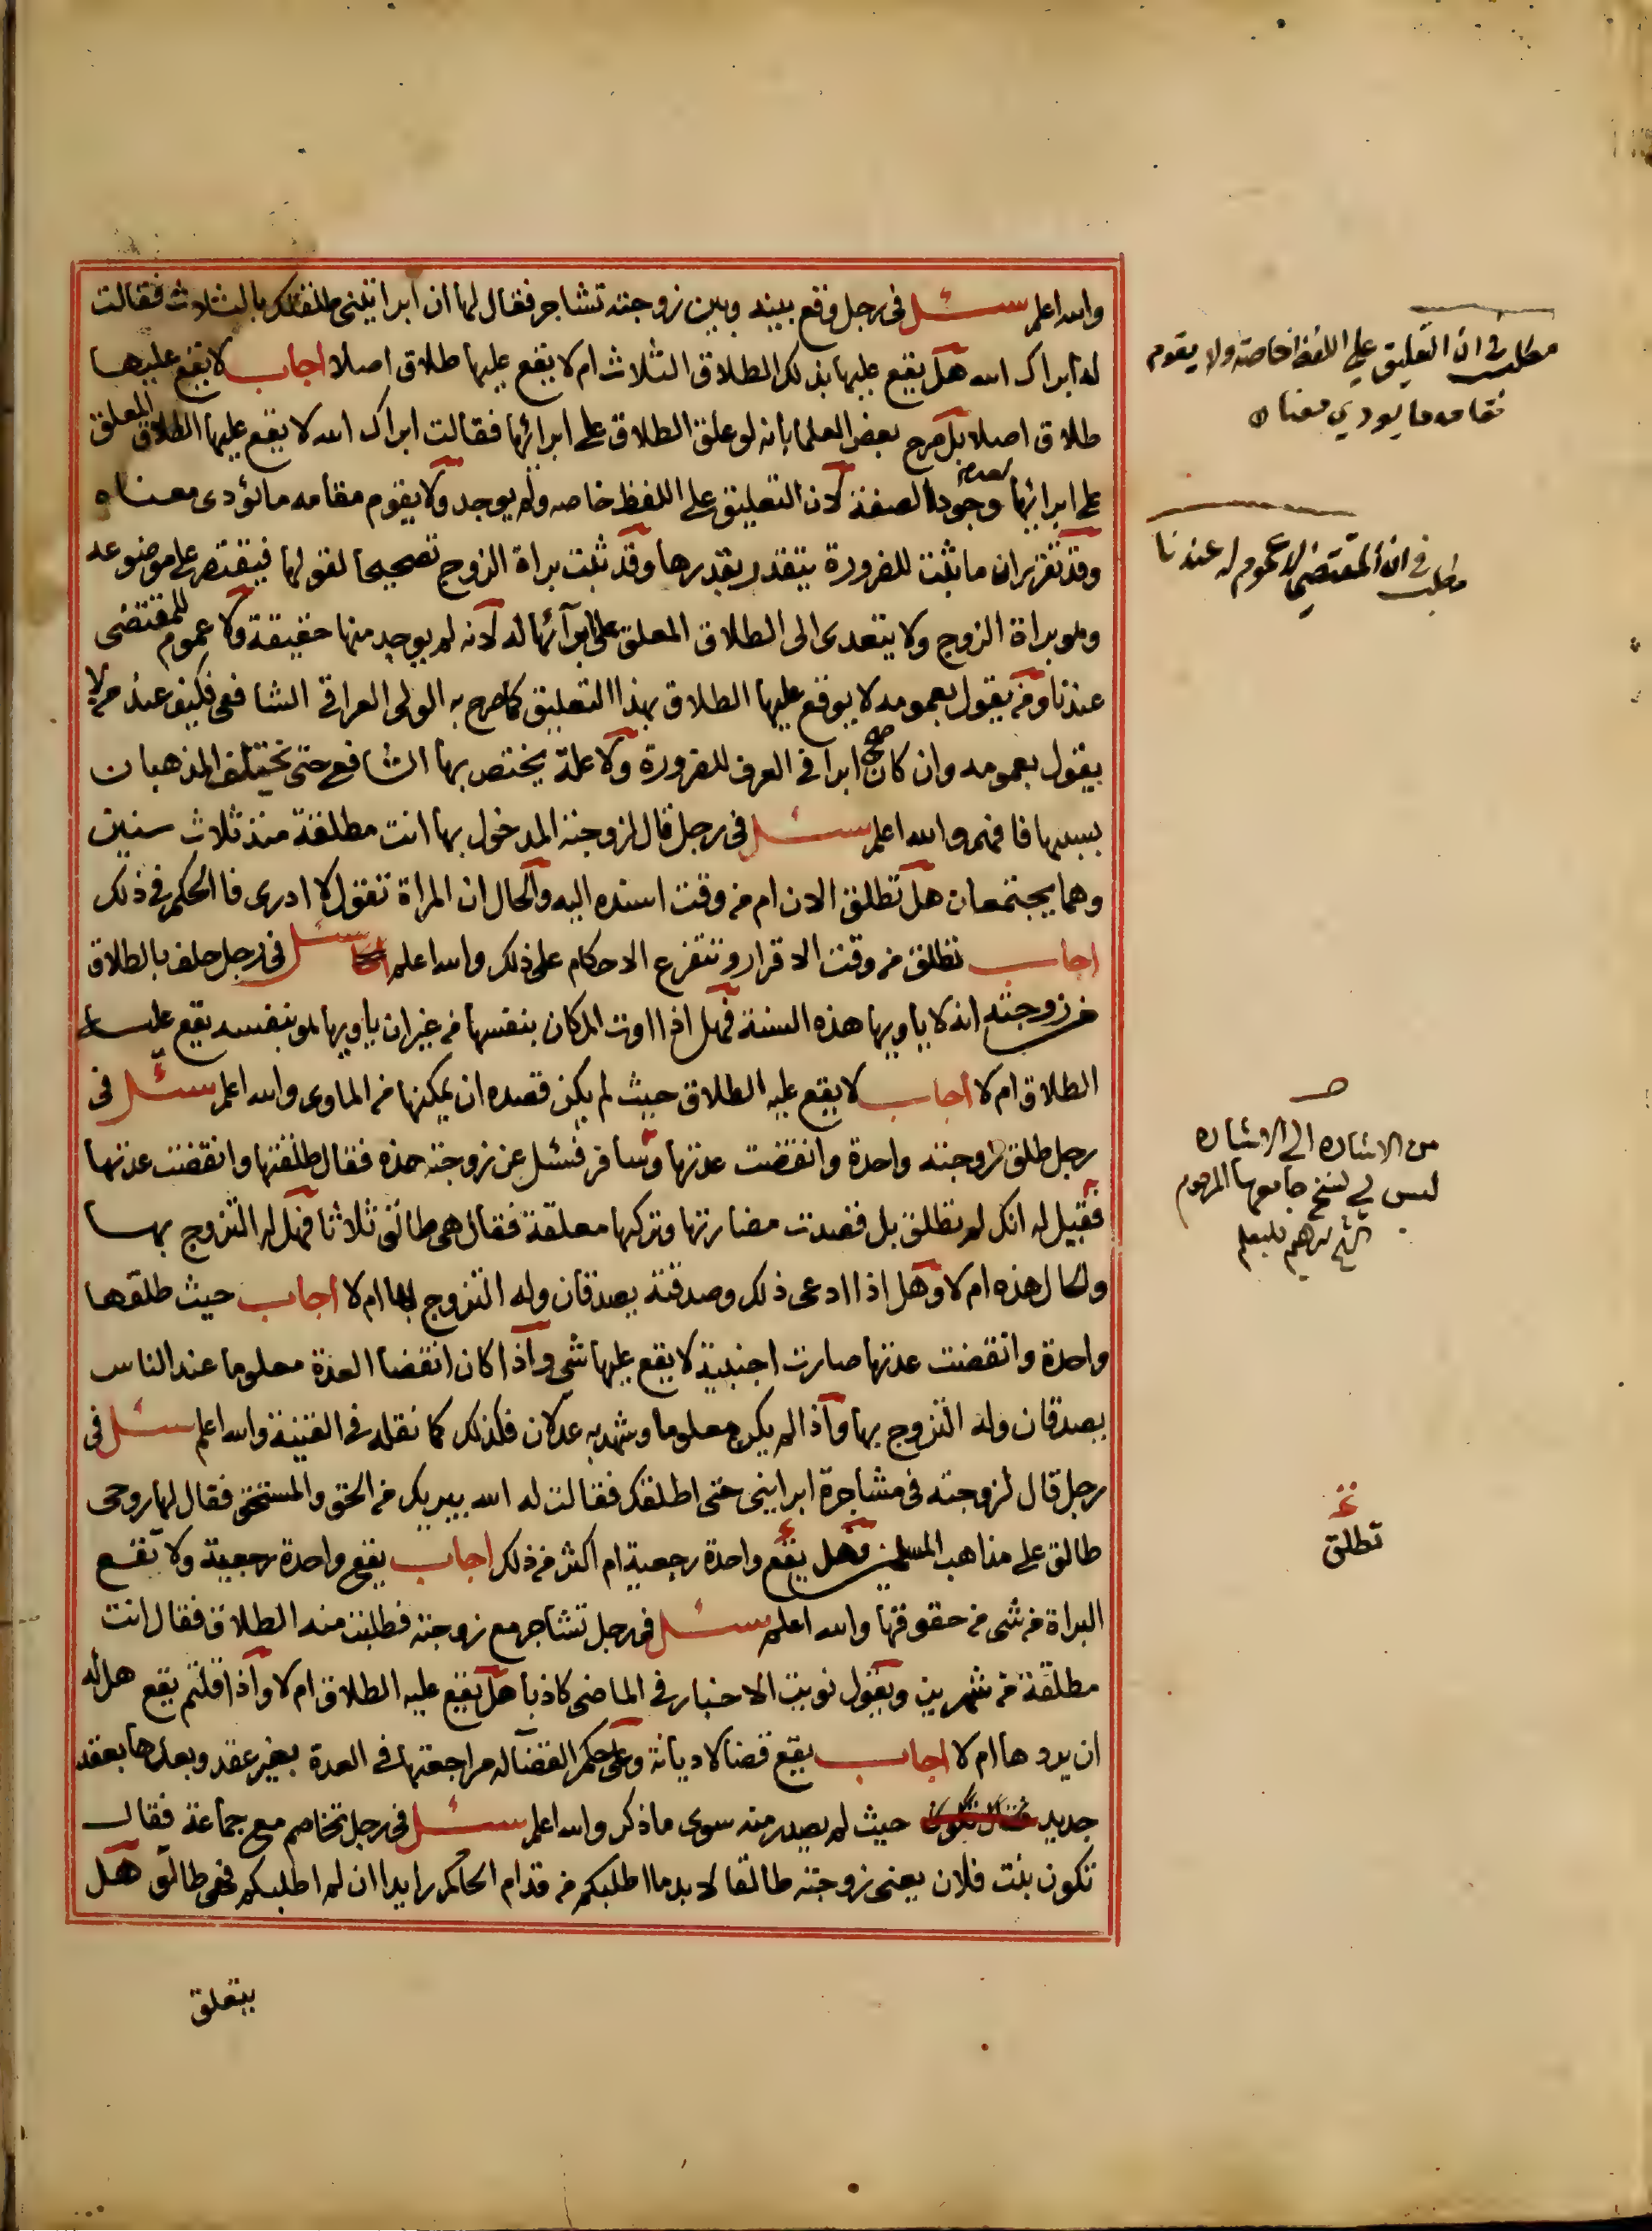 والله اعلم سئل فى رجل وقع بينه وبين زوجته تشاجر فقال لها ان ابراتينى طلقتك بالثلاث فقالت
له ابراك الله هل يقع عليها بذلك الطلاق الثلاث ام لا يقع عليها طلاق اصلا اجاب لا يقع عليها
طلاق اصلا بل صرح بعض العلما بانه لو علق الطلاق على ابرائها فقالت ابراك الله لا يقع عليها الطلاق المعلق
على ابرائها لعدم وجود الصفة لان التعليق على اللفظ خاصه ولم يوجد ولا يقوم مقامه ما يؤدى معناه
وقد تقرر ان ما ثبت للضرورة يتقدر بقدرها وقد ثبت براة الزوج تصحيحا لقولها فيقتصر على موضوعه
وهو براة الزوج ولا يتعدى الى الطلاق المعلق على ابرآئها له لانه لم يوجد منها حقيقة ولا عموم للمقتضى
عندنا ومن يقول بعمومه لا يوقع عليها الطلاق بهذا التعليق كما صرح به الولى العراقى الشافعى فكيف عند من لا
يقول بعمومه وان كان صح ابرا فى العرف للضرورة ولا علة يختص بها الشافعى حتى يختلف المذهبان
بسببها فافهم والله اعلم سئل فى رجل قال لزوجته المدخول بها انت مطلقة منذ ثلاث سنين
وهما يجتمعان هل تطلق الان ام من وقت اسنده اليه والحال ان المراة تقول لا ادرى فما الحكم فى ذلك
اجاب تطلق من وقت الاقرار وتتفرع الاحكام على ذلك والله اعلم سئل فى رجل حلف بالطلاق
من زوجته انه لا ياويها هذه السنة فهل اذا اوت المكان بنفسها من غير ان ياويها هو بنفسه يقع عليه
الطلاق ام لا اجاب لا يقع عليه الطلاق حيث لم يكن قصده ان يمكنها من الماوى والله اعلم سئل فى
رجل طلق زوجته واحدة وانقضت عدتها وسافر فسئل عن زوجته هذه فقال طلقتها وانقضت عدتها
فقيل له انك لم تطلق بل قصدت مضارتها وتركها معلقة فقال هى طالق ثلاثا فهل له التزوج بها
والحال هذه ام لا وهل اذا ادعى ذلك وصدقته يصدقان وله التزوج بها ام لا اجاب حيث طلقها
واحدة وانقضت عدتها صارت اجنبية لا يقع عليها شى واذا كان انقضا العدة معلوما عند الناس
يصدقان وله التزوج بها واذا لم يكن معلوما وشهد به عدلان فكذلك كما نقله فى القنية والله اعلم سئل فى
رجل قال لزوجته فى مشاجرة ابراينى حتى اطلقك فقالت له الله يبريك من الحق والمستحق فقال لها روحى
طالق على مذاهب المسلمين فهل يقع واحدة رجعية ام اكثر من ذلك اجاب يقع واحدة رجعية ولا تقع
البراة من شى من حقوقها والله اعلم سئل فى رجل تشاجر مع زوجته فطلبت منه الطلاق فقال انت
مطلقة من شهرين ويقول نويت الاخبار فى الماضى كاذبا هل يقع عليه الطلاق ام لا واذا قلتم يقع هل له
ان يردها ام لا اجاب يقع قضا لا ديانة وعلى حكم القضا له مراجعتها فى العدة بغير عقد وبعدها بعقد
جديد حيث لم يصدر منه سوى ما ذكر والله اعلم سئل فى رجل تخاصم مع جماعة فقال
تكون بنت فلان يعنى زوجته طالقا لابد ما اطلبكم من قدام الحاكم رايدا ان لم اطلبكم فهى طالق هل
يتعلق
مطلب فى ان التعليق على اللفظ خاصة ولا يقوم
مقامه ما يودي معناه
مطلب فى ان المقتضى لا عموم له عندنا
صـ
من الاشاره الى الاشاره
ليس فى نسخ جامعها المرحوم
الشيخ ابرهيم فليعلم
تطلق